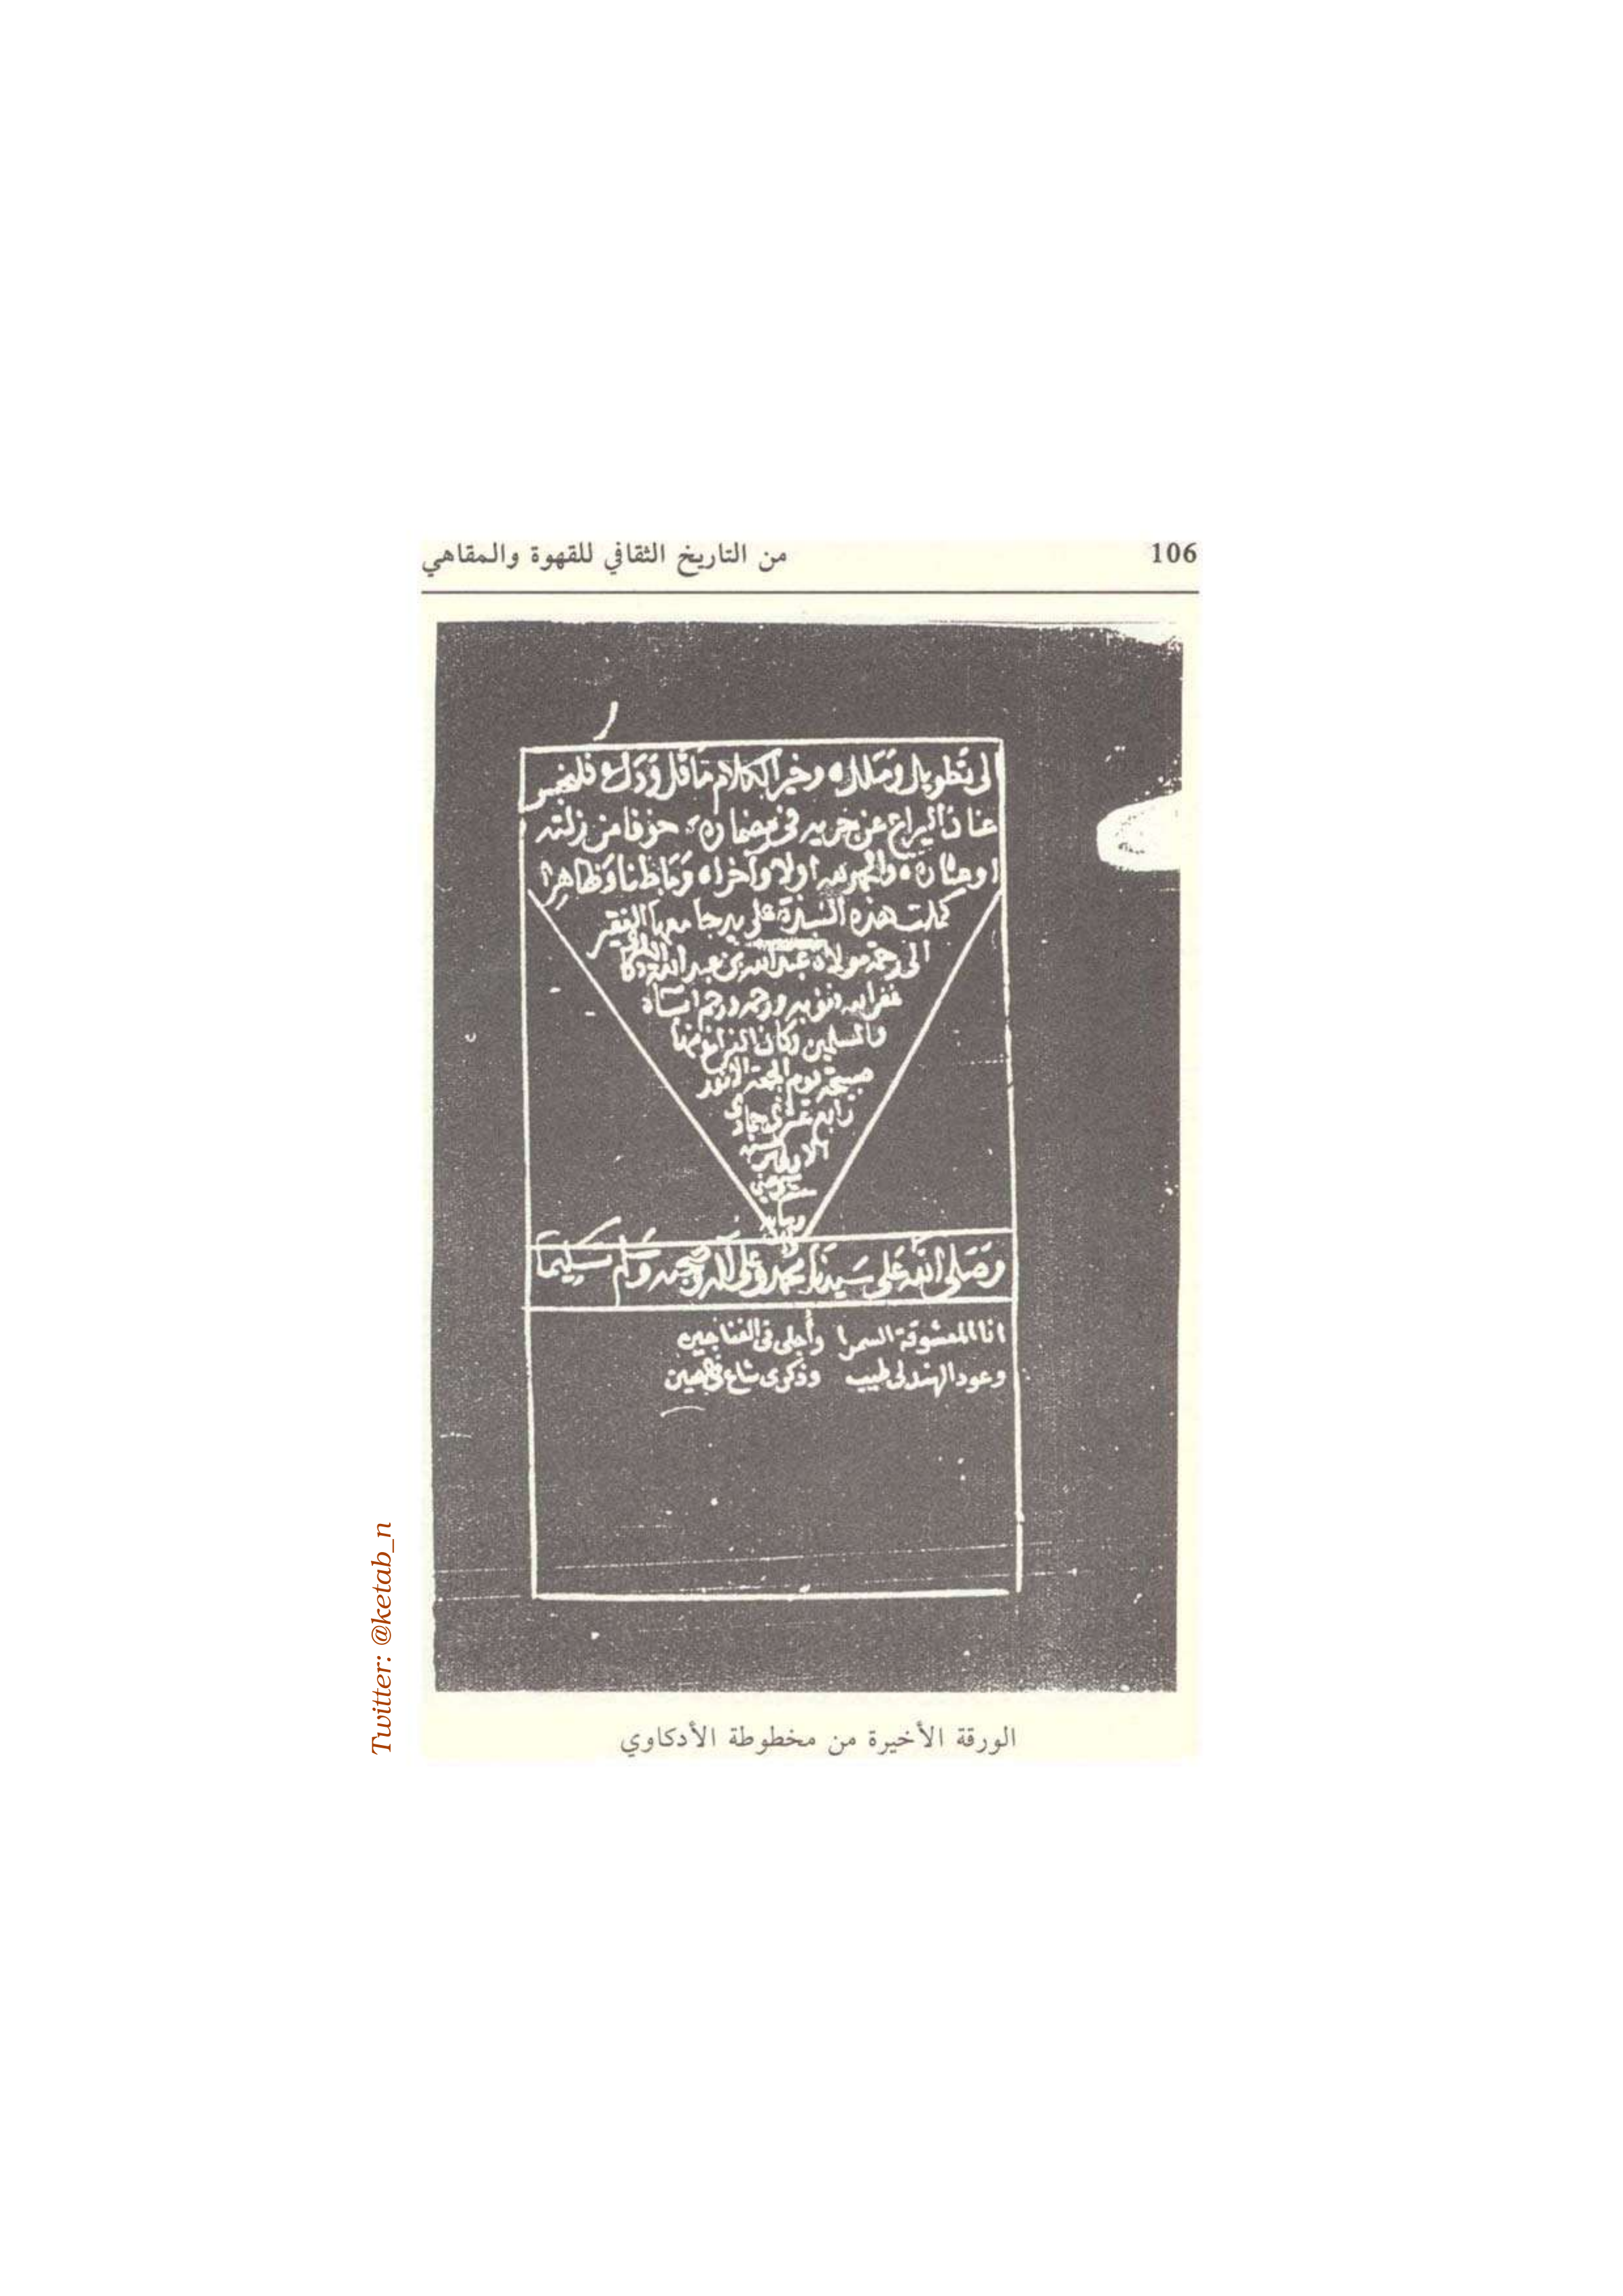 106
من التاريخ الثقافي للقهوة والمقاهي
الى تطويل وملل وخير الكلام ما قل ودل
عنان اليراع عن جريه في مضماره خوفا من زلته
او عثاره والحمد لله اولا وآخرا وباطنا وظاهرا
كملت هذه النبذة على يد جامعها الفقير
الى رحمة مولاه عبد الله بن عبد الله
غفر الله ذنوبه ورحمه ورحم اسلافه
والمسلمين وكان الفراغ منها
صبيحة يوم الجمعة الانور
رابع جمادى
وصلى الله على سيدنا محمد وعلى آله وصحبه وسلم تسليما
انا المعشوقة السمرا وأجلى في الفناجين
وعود الهند لي طيب وذكرى شاع في الصين
الورقة الأخيرة من مخطوطة الأدكاوي
Twitter: @ketab_n